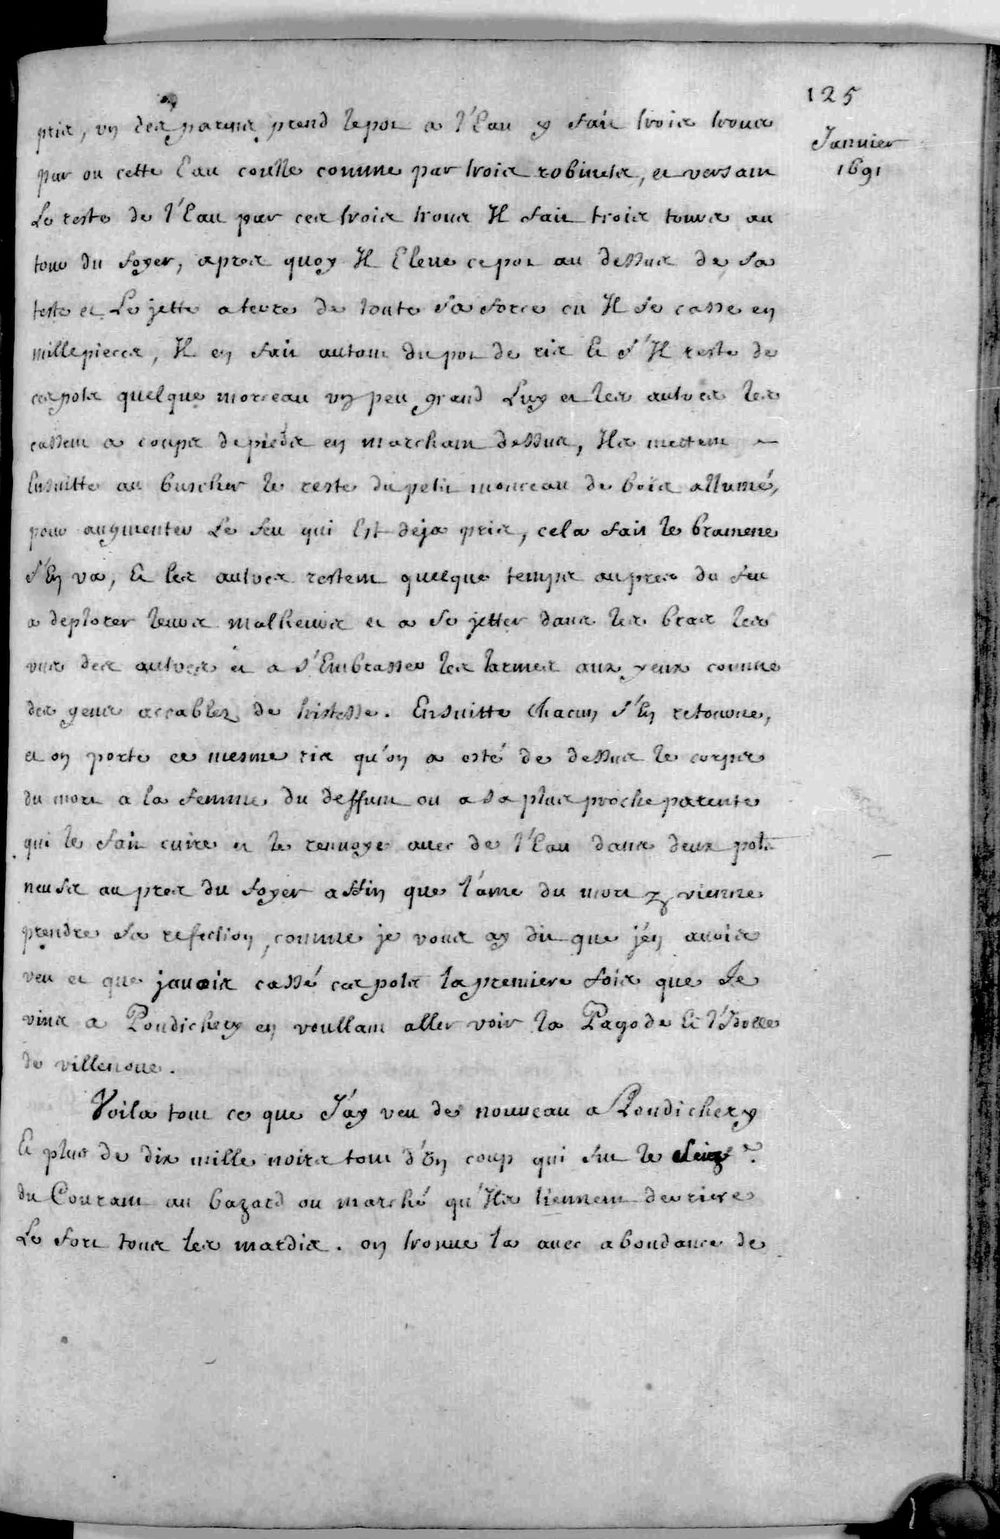 125
Janvier
1691
pris, un des parens prend le pot a l'Eau y fait trois trous
par ou cette Eau coulle comme par trois robinets, et versant
Le reste de l'Eau par ces trois trous Il fait trois tours au
tour du foyer, apres quoy Il Eleve ce pot au dessus de sa
teste et Le jette a terre de toute sa force ou Il se casse en
mille pieces, Il en fait autant du pot de ris Et s'Il reste de
ces pots quelque morceau un peu grand Luy et les autres les
cassent a coups de pieds en marchant dessus, Ils mettent
Ensuitte au buscher le reste du petit monceau de bois allumé,
pour augmenter Le feu qui Est deja pris, cela fait le bramene
s'En va, Et les autres restent quelque temps aupres du feu
a deplorer leurs malheurs et a se jetter dans les bras les
uns des autres et a s'Embrasser les larmes aux yeux comme
des gens accablez de tristesse. Ensuitte chacun s'En retourne,
et on porte ce mesme ris qu'on a osté de dessus le corps
du mort a la femme du deffunt ou a sa plus proche parente
qui le fait cuire et le renvoye avec de l'Eau dans deux pots
neufs aupres du foyer affin que l'ame du mort y vienne
prendre sa refection, comme je vous ay dit que j'en avois
veu et que javois cassé ces pots la premiere fois que Je
vins a Pondichery en voullant aller voir la Pagode Et l'Idolle
de villenove.
Voila tout ce que J'ay veu de nouveau a Pondichery
Et plus de dix mille noirs tout d'Un coup qui fut le seize.e
du Courant au bazard ou marché qu'Ils tiennent derriere
Le fort tous les mardis. on trouve la avec abondance de